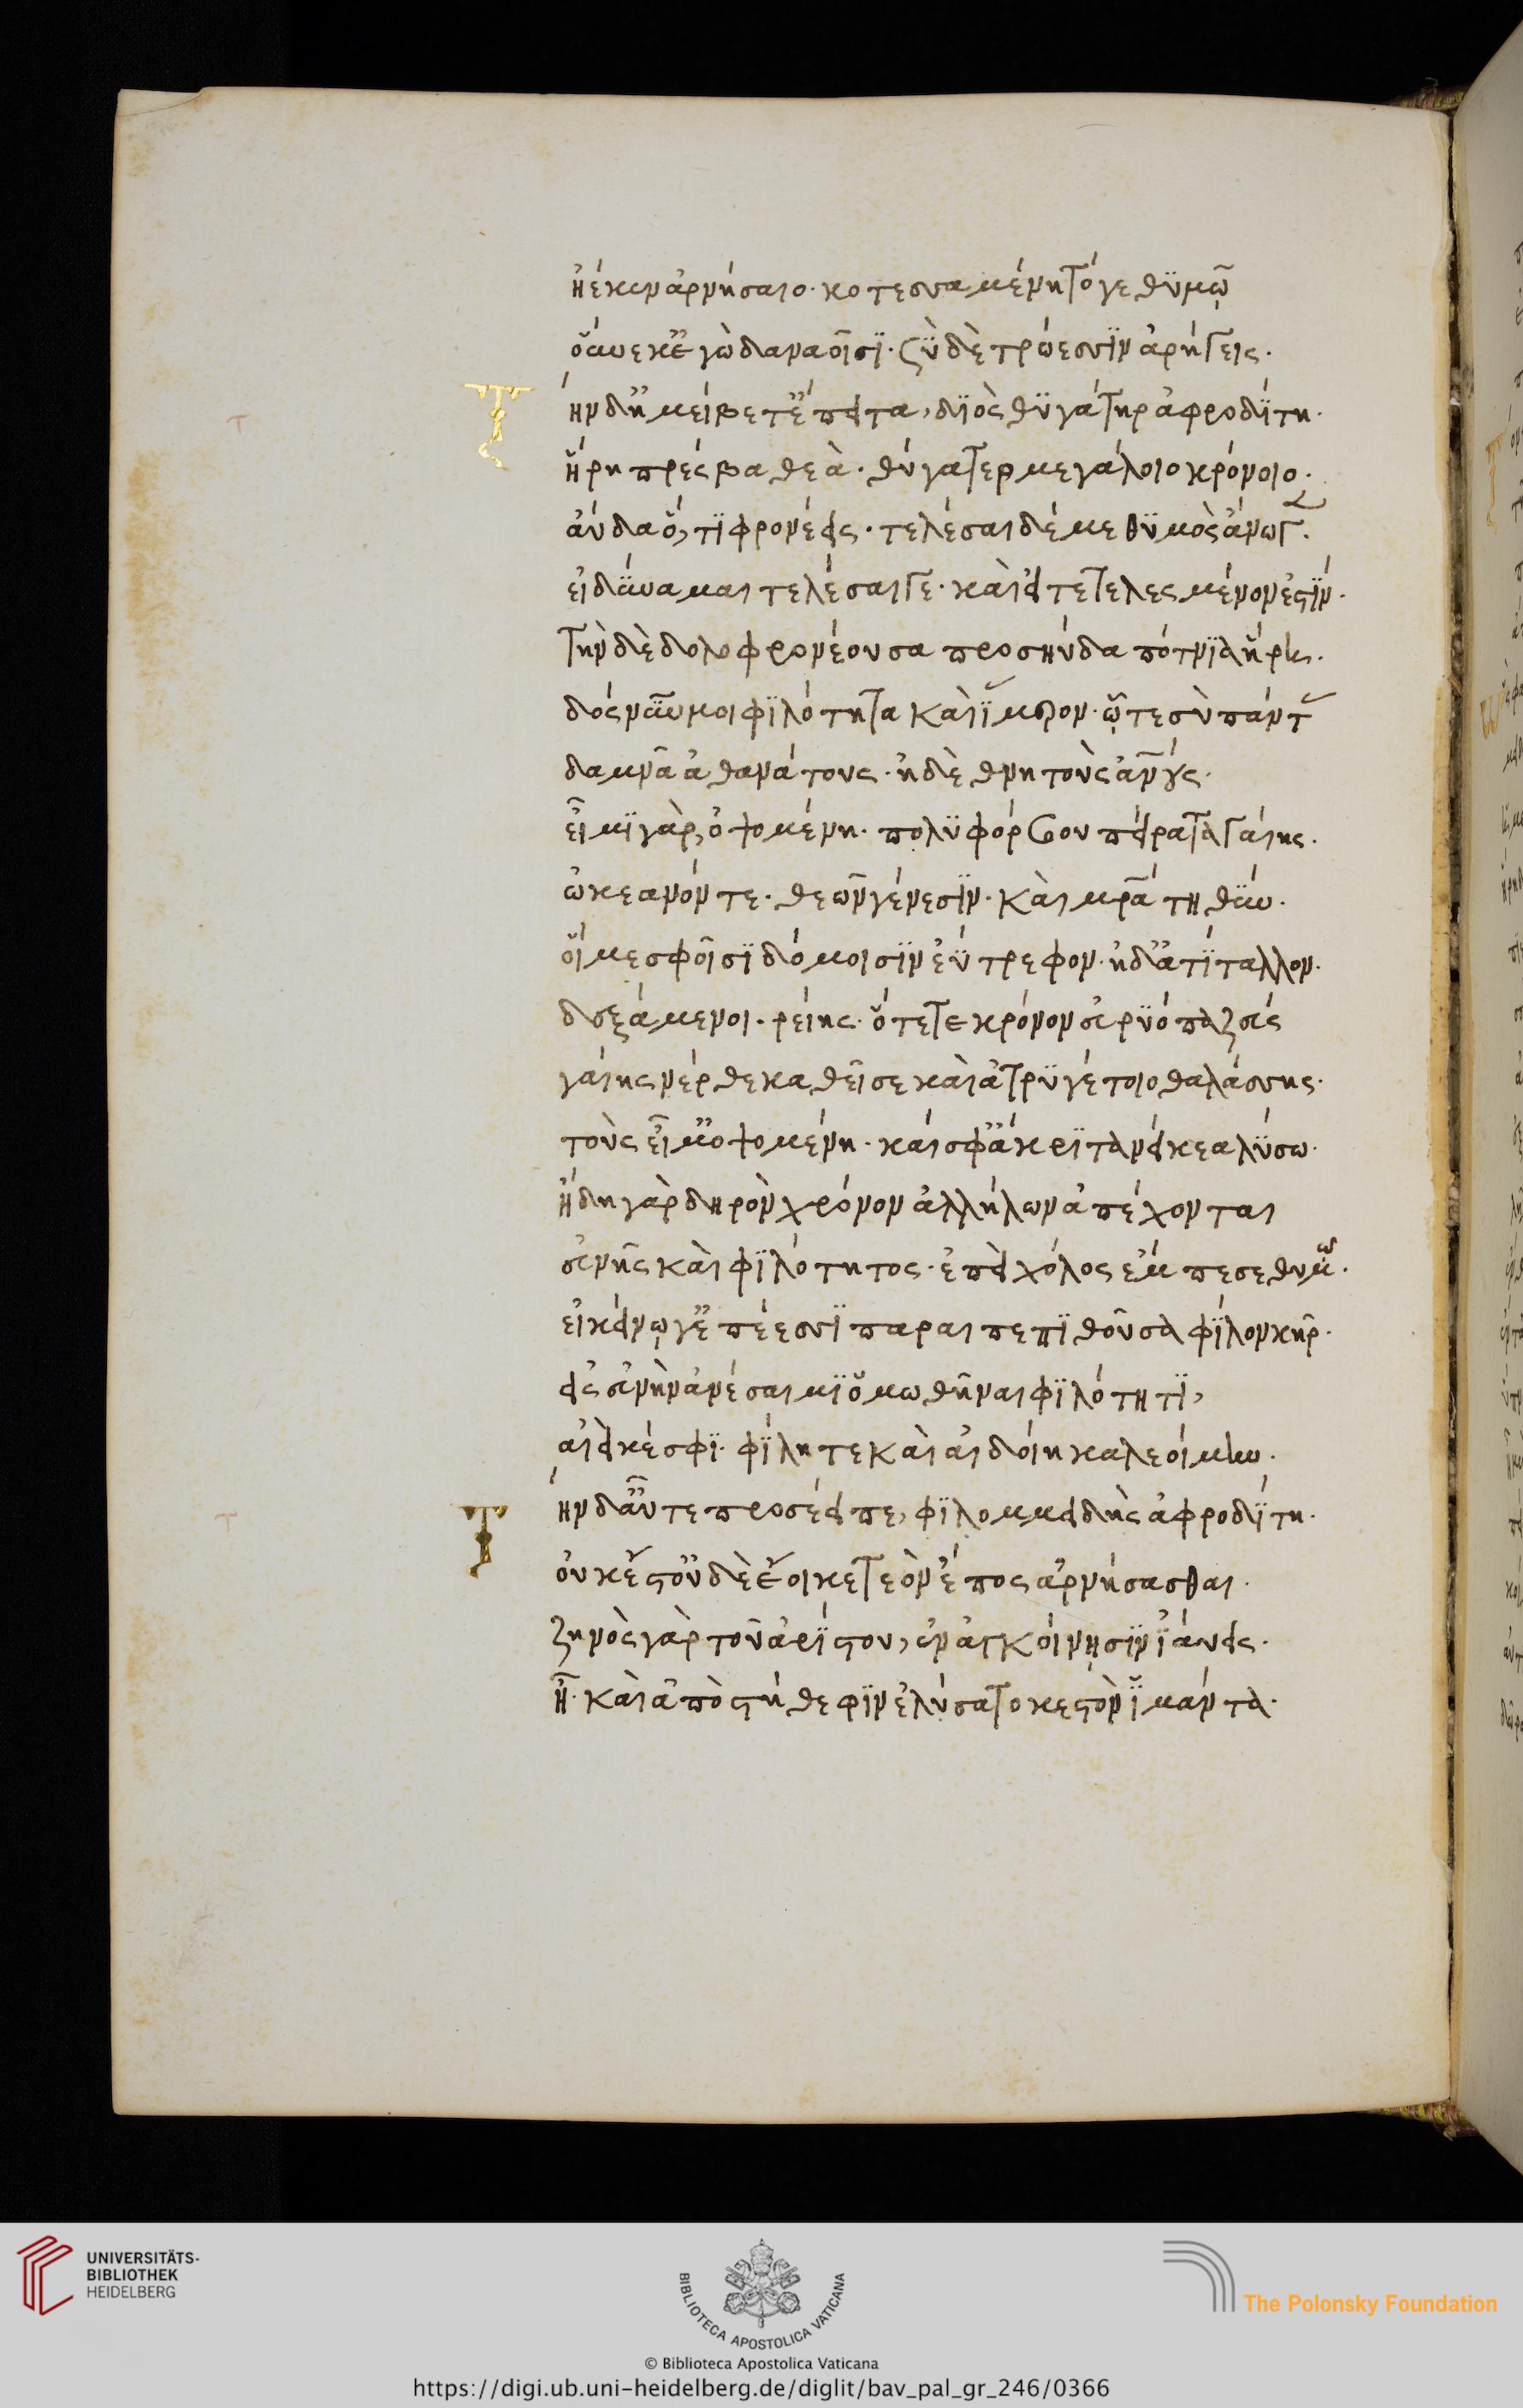 ἠέ κεν ἀρνήσαιο· κοτεσσαμένη τό γε θυμῷ
οὕνεκ' ἐγὼ δαναοῖσι· σὺ δὲ τρώεσσιν ἀρήγεις·
Τὴν δ' ἠμείβετ' ἔπειτα, διὸς θυγάτηρ ἀφροδίτη·
ἥρη πρέσβα θεὰ· θύγατερ μεγάλοιο κρόνοιο·
αὔδα ὅ, τι φρονέεις· τελέσαι δέ με θυμὸς ἄνωγ·
εἰ δύναμαι τελέσαι γε· καὶ εἰ τετελεσμένον ἐστίν·
Τὴν δὲ δολοφρονέουσα προσηύδα πότνια ἥρη·
δός νῦν μοι φιλότητα καὶ ἵμερον· ᾧ τε σὺ πάντ
δαμνᾷ ἀθανάτους· ἠδὲ θνητοὺς ἀνους·
εἶμι γὰρ, ὀψομένη· πολυφόρβου πείρατα γαίης·
ὠκεανόν τε· θεῶν γένεσιν· καὶ μρα τηθύν·
οἵ με σφοῖσι δόμοισιν ἐὺ τρεφον· ἠδ' ἀτίταλλον·
δεξάμενοι· ῥείης· ὅτε τε κρόνον εὐρύοπα ζεὺς
γαίης νέρθε καθεῖσε καὶ ἀτρυγέτοιο θαλάσσης·
τοὺς εἶμ' ὀψομένη· καί σφ' ἄκριτα νείκεα λύσω·
ἤδη γὰρ δηρὸν χρόνον ἀλλήλων ἀπέχονται
εὐνῆς καὶ φιλότητος· ἐπεὶ χόλος ἔμπεσε θυμῶ·
εἰ κείνω γ' ἐπέεσσι παραιπεπιθοῦσα φίλον κῆρ·
εἰς εὐνὴν ἀνέσαιμι ὁμωθῆναι φιλότητι,
αἰεί κέ σφι· φίλη τε καὶ αἰδοίη καλεοίμην·
Τὴν δ' αὖτε προσέειπε, φιλομμειδὴς ἀφροδίτη·
οὐκ ἔστ' οὐδὲ ἔοικε τεὸν ἔπος ἀρνήσασθαι·
ζηνὸς γὰρ τοῦ ἀρίστου, ἐν ἀγκοίνησιν ἰαύεις·
ἦ· καὶ ἀπὸ στήθεφιν ἐλύσατο κεστὸν ἱμάντα·
T
T
UNIVERSITÄTS-
BIBLIOTHEK
HEIDELBERG
BIBLIOTECA APOSTOLICA VATICANA
The Polonsky Foundation
© Biblioteca Apostolica Vaticana
https://digi.ub.uni-heidelberg.de/diglit/bav_pal_gr_246/0366